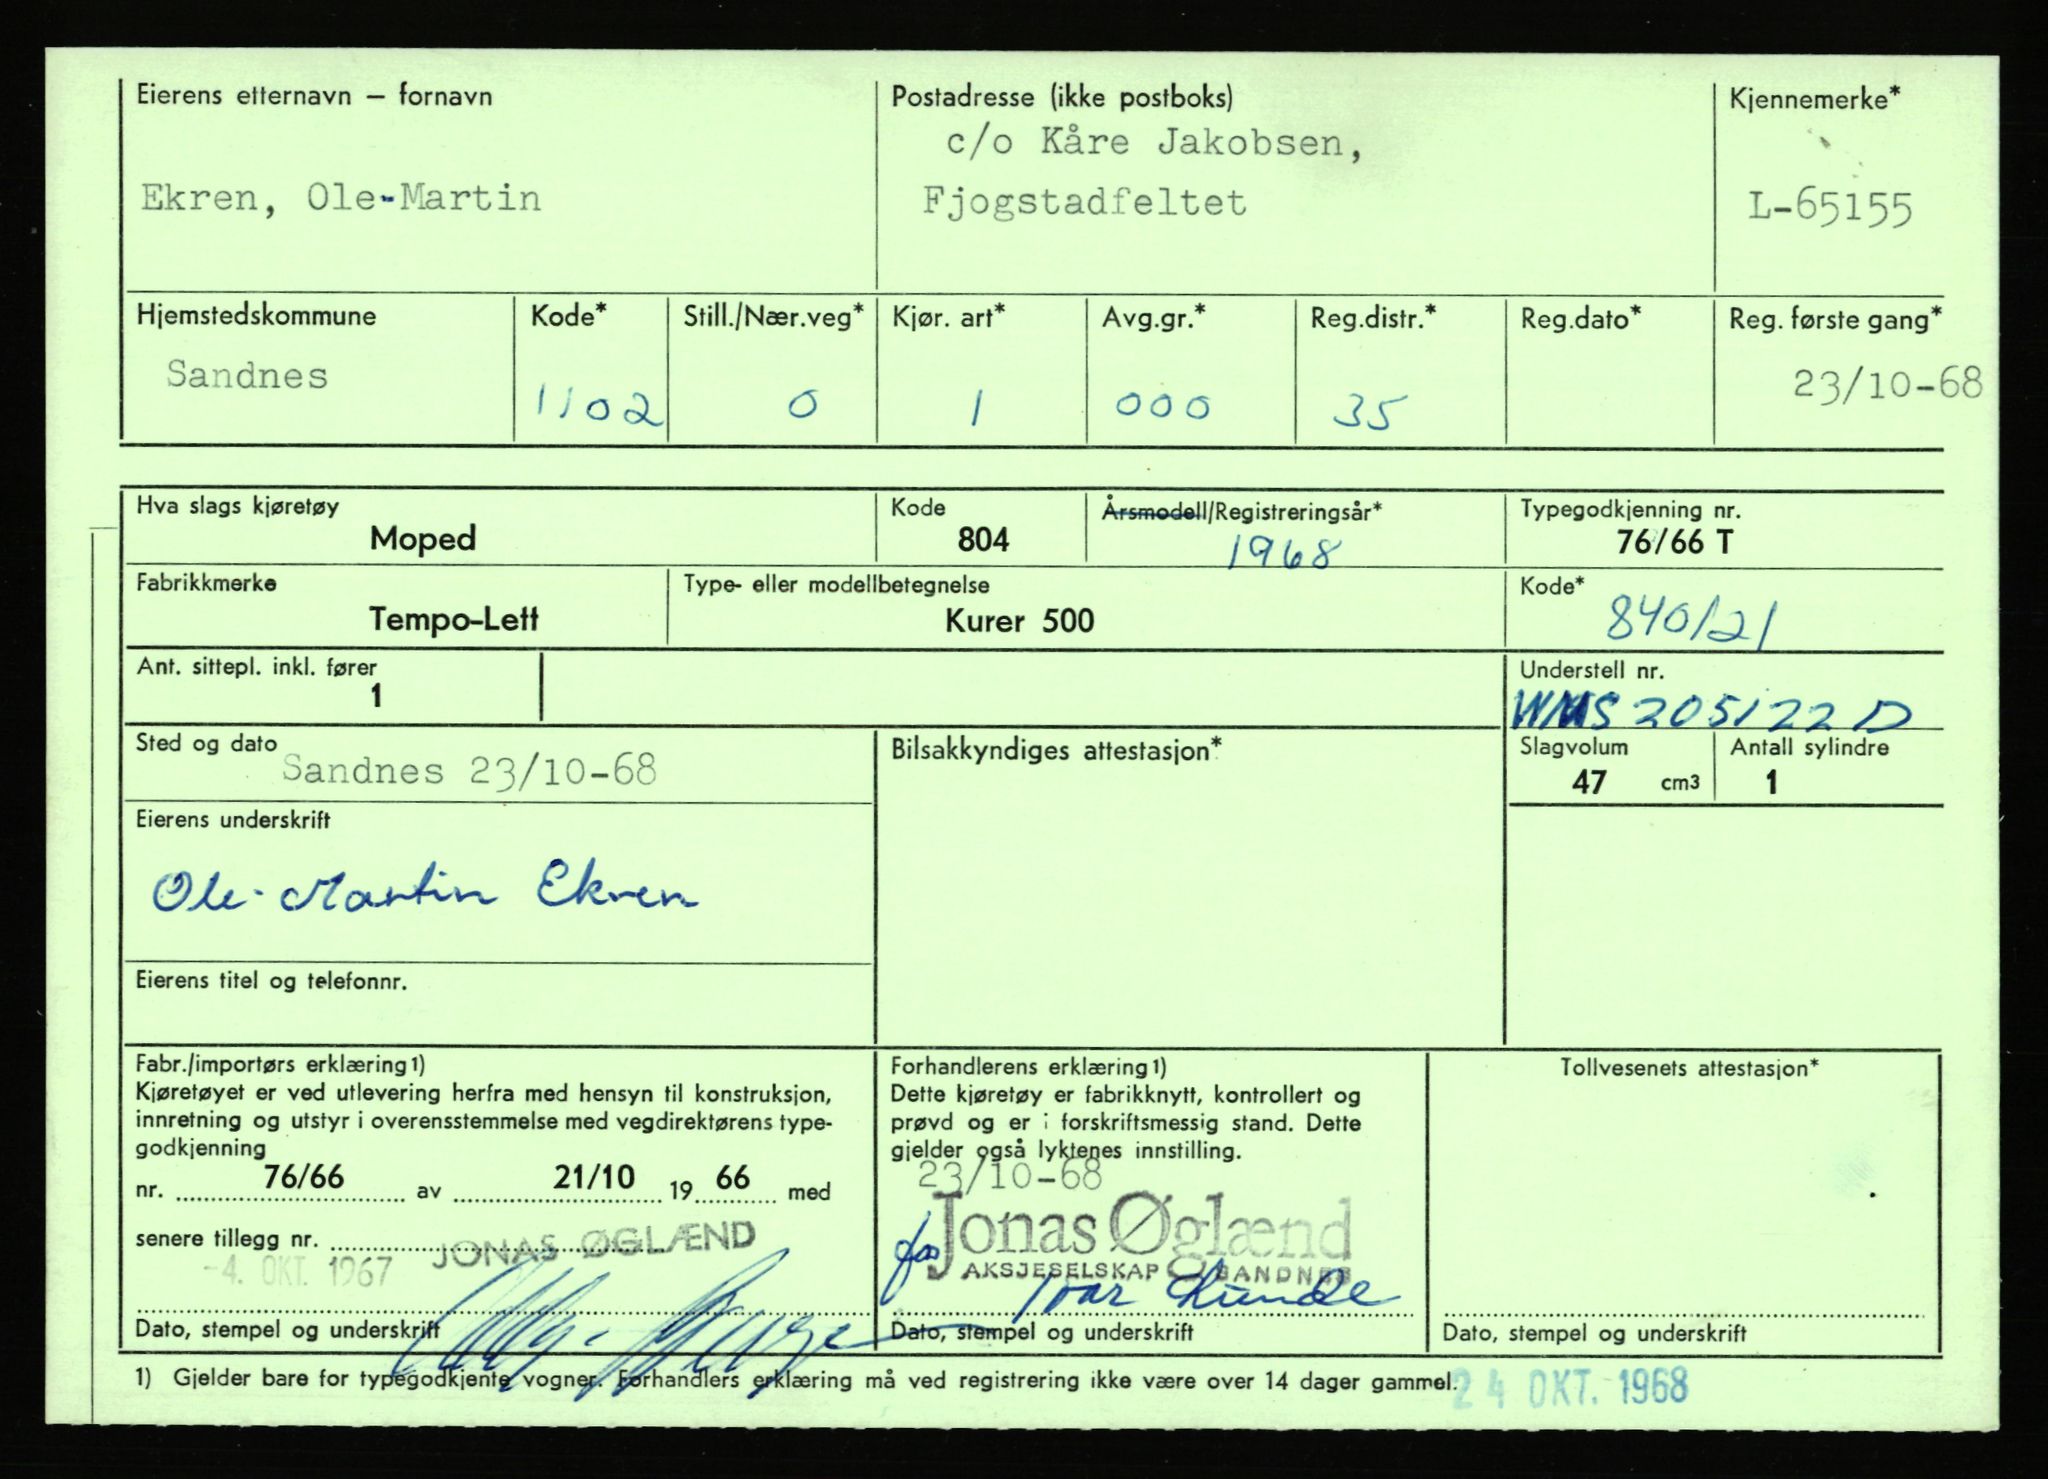 Eierens etternavn – fornavn
Ekren, Ole-Martin
Postadresse (ikke postboks)
c/o Kåre Jakobsen,
Fjogstadfeltet
Kjennemerke*
L-65155
Hjemstedskommune
Sandnes
Kode*
1102
Still./Nær.veg*
0
Kjør. art*
1
Avg.gr.*
000
Reg.distr.*
35
Reg.dato*
Reg. første gang*
23/10-68
Hva slags kjøretøy
Moped
Kode
804
Årsmodell/Registreringsår*
1968
Typegodkjenning nr.
76/66 T
Fabrikkmerke
Tempo-Lett
Type- eller modellbetegnelse
Kurer 500
Kode*
840/21
Ant. sittepl. inkl. fører
1
Understell nr.
WMS 205122 D
Sted og dato
Sandnes 23/10-68
Bilsakkyndiges attestasjon*
Slagvolum
47 cm3
Antall sylindre
1
Eierens underskrift
Ole-Martin Ekren
Eierens titel og telefonnr.
Fabr./importørs erklæring 1)
Kjøretøyet er ved utlevering herfra med hensyn til konstruksjon,
innretning og utstyr i overensstemmelse med vegdirektørens type-
godkjenning
nr. 76/66 av 21/10 19 66 med
senere tillegg nr.
JONAS ØGLÆND
-4. OKT. 1967
Dato, stempel og underskrift
Forhandlerens erklæring 1)
Dette kjøretøy er fabrikknytt, kontrollert og
prøvd og er i forskriftsmessig stand. Dette
gjelder også lyktenes innstilling.
23/10-68
for Jonas Øglænd
AKSJESELSKAP SANDNES
Ivar Lunde
Dato, stempel og underskrift
Tollvesenets attestasjon*
Dato, stempel og underskrift
1) Gjelder bare for typegodkjente vogner. Forhandlers erklæring må ved registrering ikke være over 14 dager gammel.
24 OKT. 1968